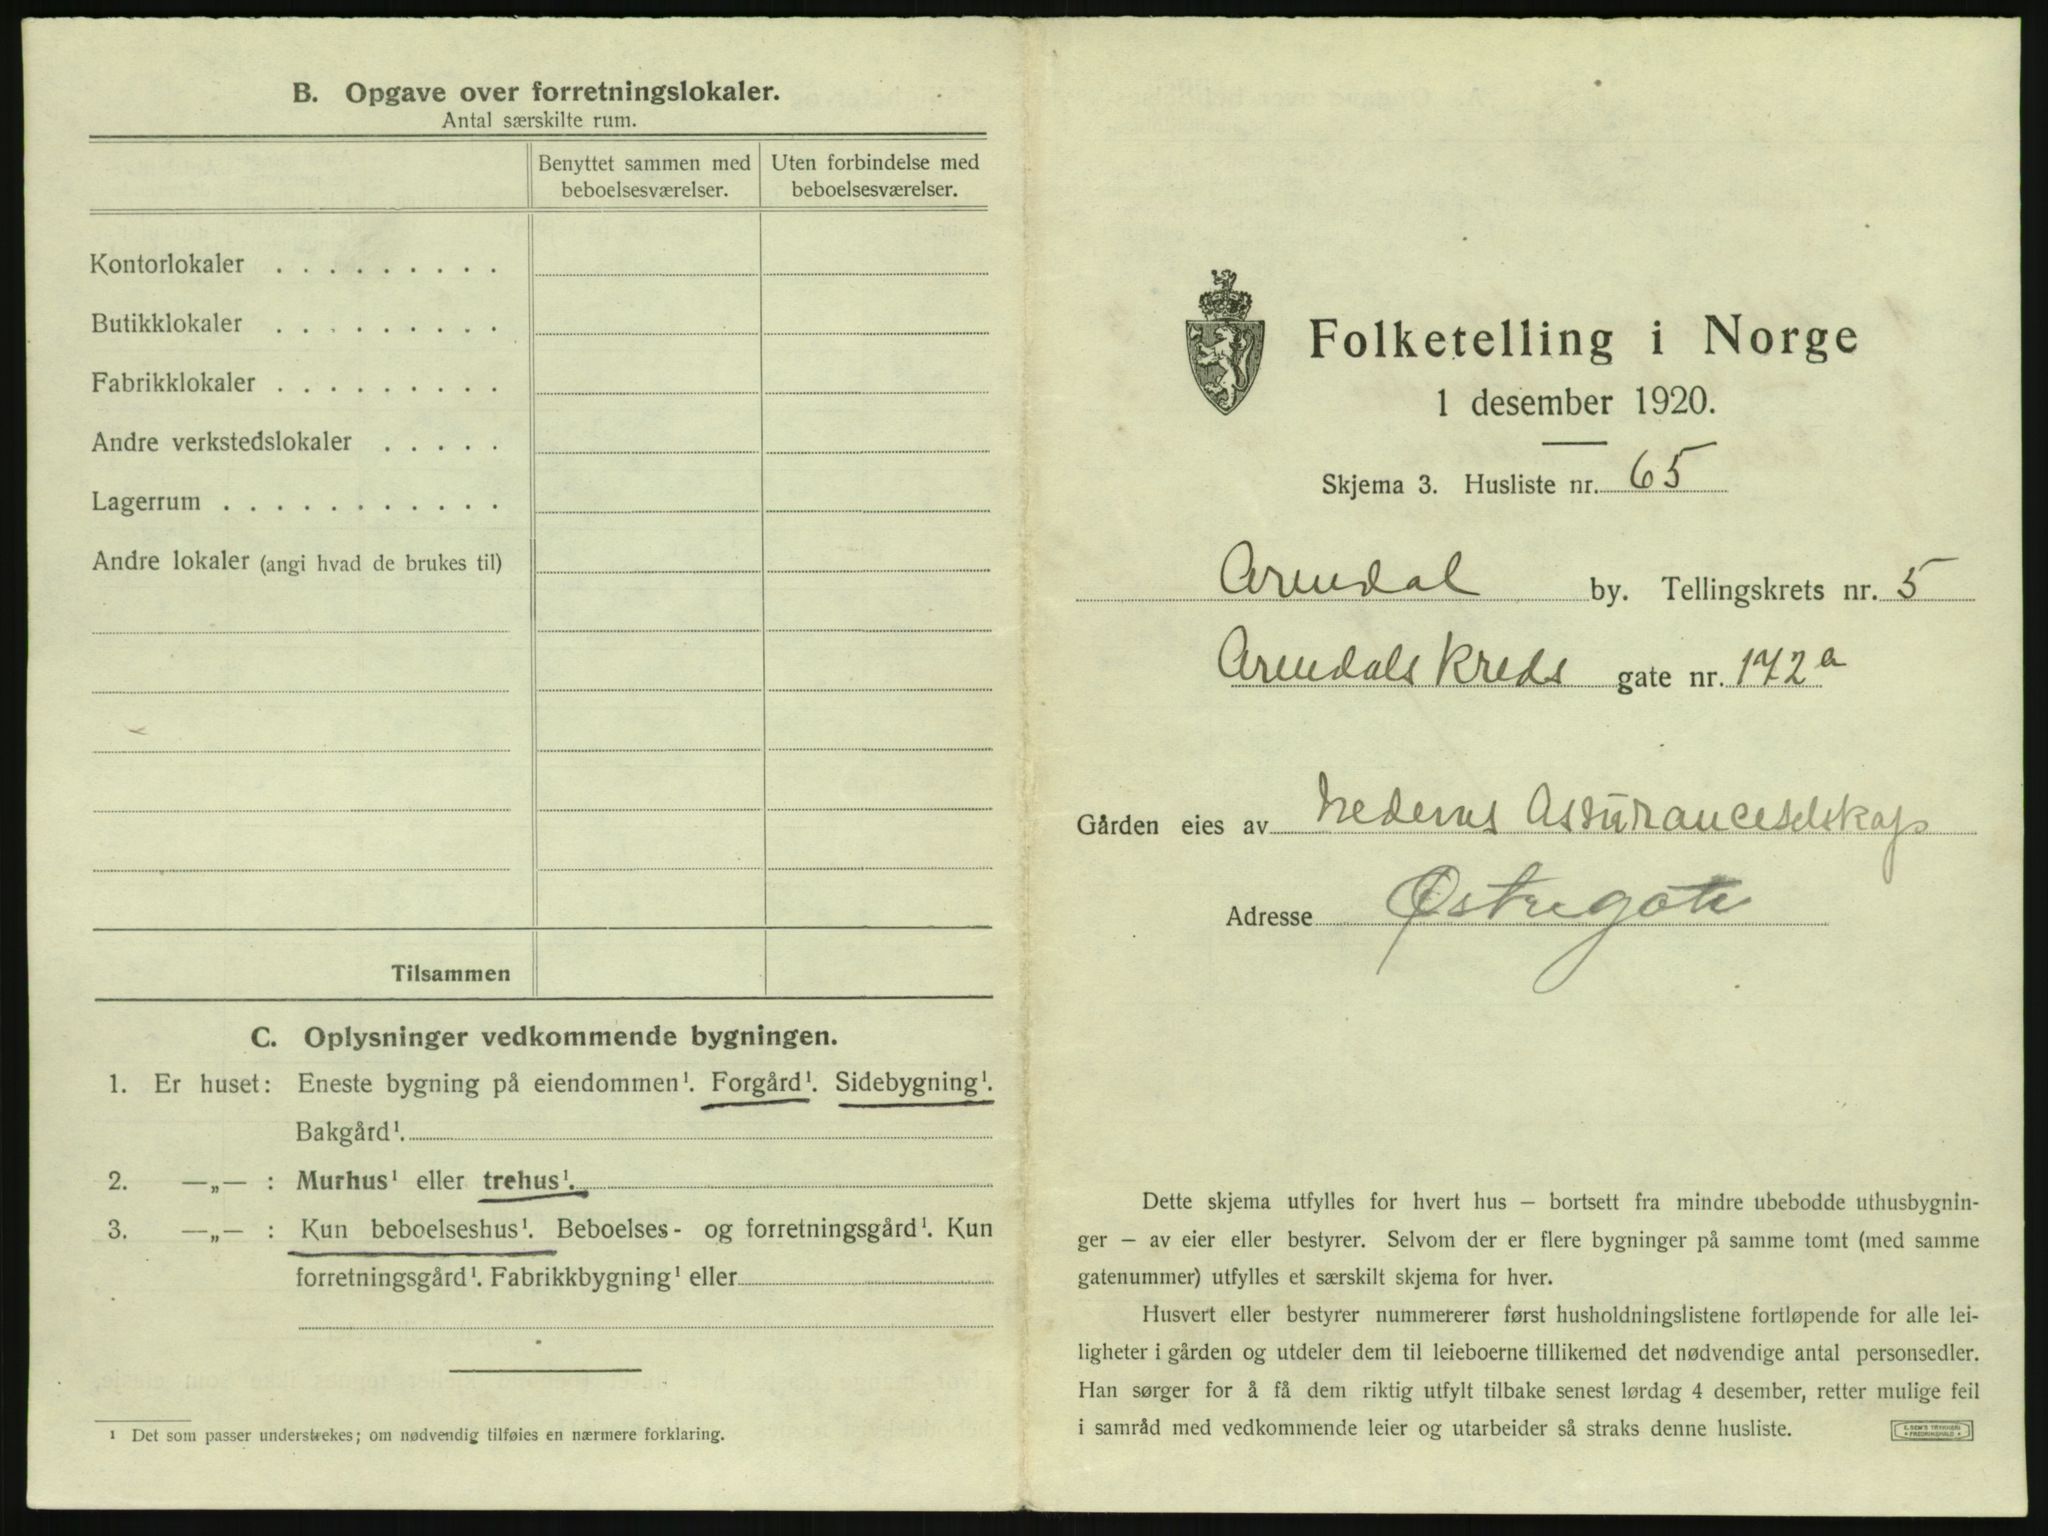 B. Opgave over forretningslokaler.
Antal særskilte rum.
Benyttet sammen med beboelsesværelser.
Uten forbindelse med beboelsesværelser.
Kontorlokaler . . . . . . . . .
Butikklokaler . . . . . . . . .
Fabrikklokaler . . . . . . . . .
Andre verkstedslokaler . . . . .
Lagerrum . . . . . . . . . . .
Andre lokaler (angi hvad de brukes til)
Tilsammen
C. Oplysninger vedkommende bygningen.
1. Er huset: Eneste bygning på eiendommen¹. Forgård¹. Sidebygning¹.
Bakgård¹.
2. —„— : Murhus¹ eller trehus¹.
3. —„— : Kun beboelseshus¹. Beboelses- og forretningsgård¹. Kun
forretningsgård¹. Fabrikkbygning¹ eller
¹ Det som passer understrekes; om nødvendig tilføies en nærmere forklaring.
Folketelling i Norge
1 desember 1920.
Skjema 3. Husliste nr. 65
Arendal by. Tellingskrets nr. 5
Arendals Kreds gate nr. 172a
Gården eies av Nedenes Assuranceselskap
Adresse Østregate
Dette skjema utfylles for hvert hus – bortsett fra mindre ubebodde uthusbygnin-
ger – av eier eller bestyrer. Selvom der er flere bygninger på samme tomt (med samme
gatenummer) utfylles et særskilt skjema for hver.
Husvert eller bestyrer nummererer først husholdningslistene fortløpende for alle lei-
ligheter i gården og utdeler dem til leieboerne tillikemed det nødvendige antal personsedler.
Han sørger for å få dem riktig utfylt tilbake senest lørdag 4 desember, retter mulige feil
i samråd med vedkommende leier og utarbeider så straks denne husliste.